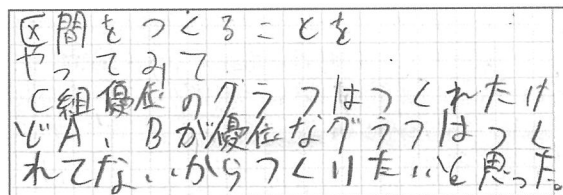 区間をつくることを
やってみて
C組優位のグラフはつくれたけ
どA、Bが優位なグラフはつく
れてないからつくりたいと思った。